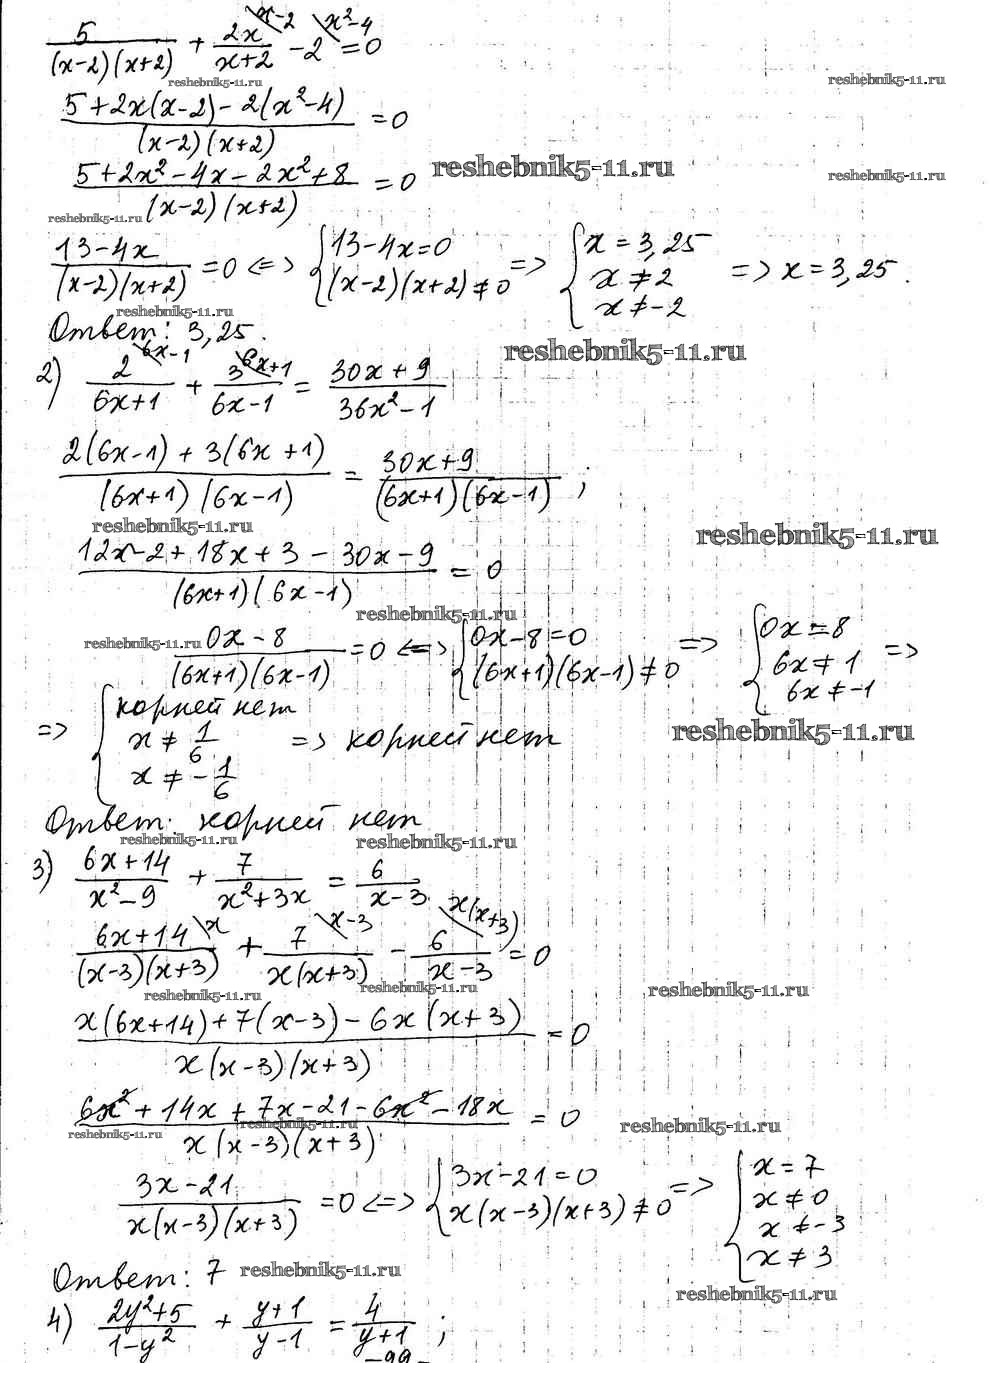 5/((x-2)(x+2)) + 2x/(x+2) \x-2 - 2 \x²-4 = 0
reshebnik5-11.ru reshebnik5-11.ru
(5+2x(x-2)-2(x²-4))/((x-2)(x+2)) = 0
reshebnik5-11.ru reshebnik5-11.ru
(5+2x²-4x-2x²+8)/((x-2)(x+2)) = 0
reshebnik5-11.ru
(13-4x)/((x-2)(x+2)) = 0 <=> {13-4x=0; (x-2)(x+2)≠0 => {x=3,25; x≠2; x≠-2 => x=3,25.
reshebnik5-11.ru
Ответ: 3,25.
reshebnik5-11.ru
2) 2/(6x+1) \6x-1 + 3/(6x-1) \6x+1 = (30x+9)/(36x²-1)
(2(6x-1)+3(6x+1))/((6x+1)(6x-1)) = (30x+9)/((6x+1)(6x-1));
reshebnik5-11.ru reshebnik5-11.ru
(12x-2+18x+3-30x-9)/((6x+1)(6x-1)) = 0
reshebnik5-11.ru
reshebnik5-11.ru
(0x-8)/((6x+1)(6x-1)) = 0 <=> {0x-8=0; (6x+1)(6x-1)≠0 => {0x=8; 6x≠1; 6x≠-1 =>
=> {корней нет; x≠1/6; x≠-1/6 => корней нет
reshebnik5-11.ru
Ответ: корней нет
reshebnik5-11.ru reshebnik5-11.ru
3) (6x+14)/(x²-9) + 7/(x²+3x) = 6/(x-3)
(6x+14)/((x-3)(x+3)) \x + 7/(x(x+3)) \x-3 - 6/(x-3) \x(x+3) = 0
reshebnik5-11.ru reshebnik5-11.ru reshebnik5-11.ru
(x(6x+14)+7(x-3)-6x(x+3))/(x(x-3)(x+3)) = 0
(6x²+14x+7x-21-6x²-18x)/(x(x-3)(x+3)) = 0
reshebnik5-11.ru reshebnik5-11.ru reshebnik5-11.ru
(3x-21)/(x(x-3)(x+3)) = 0 <=> {3x-21=0; x(x-3)(x+3)≠0 => {x=7; x≠0; x≠-3; x≠3
Ответ: 7
reshebnik5-11.ru reshebnik5-11.ru
4) (2y²+5)/(1-y²) + (y+1)/(y-1) = 4/(y+1);
-99-